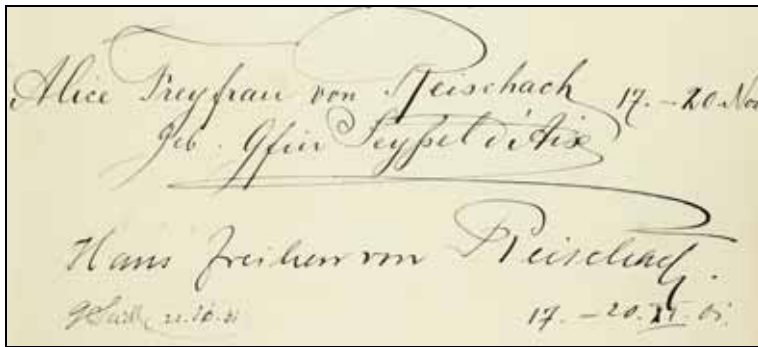 Alice Freyfrau von Reischach 17. – 20 Nov
geb. Gfin Seyßel d'Aix
Hans Freiherr von Reischach.
17. – 20. XI. 01.